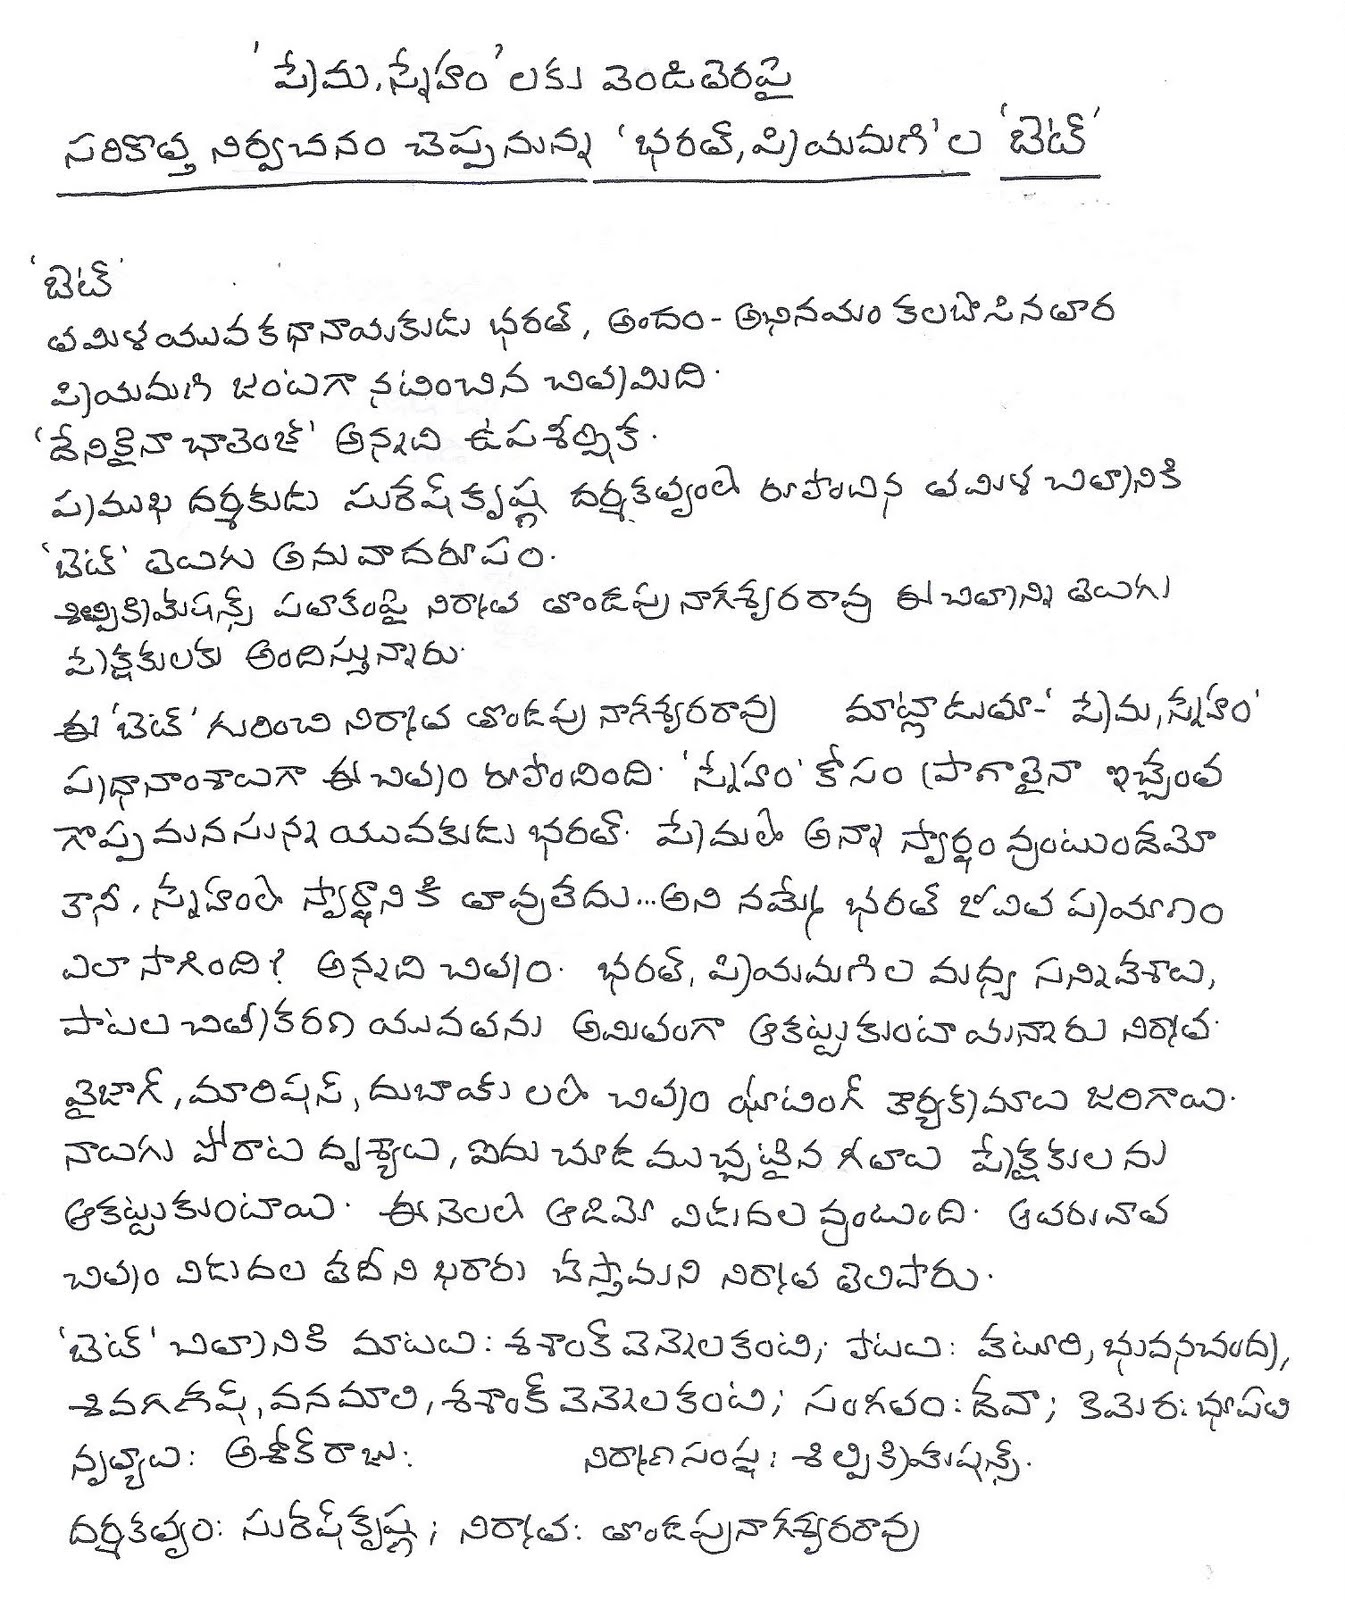 'ప్రేమ, స్నేహం' లకు వెండితెరపై
సరికొత్త నిర్వచనం చెప్పనున్న 'భరత్, ప్రియమణి'ల 'బెట్'
'బెట్'
తమిళ యువ కథానాయకుడు భరత్, అందం - అభినయం కలబోసిన తార
ప్రియమణి జంటగా నటించిన చిత్రమిది.
'దేనికైనా ఛాలెంజ్' అన్నది ఉపశీర్షిక.
ప్రముఖ దర్శకుడు సురేష్ కృష్ణ దర్శకత్వంలో రూపొందిన తమిళ చిత్రానికి
'బెట్' తెలుగు అనువాదరూపం.
శిల్పిక్రియేషన్స్ పతాకంపై నిర్మాత తొండపు నాగేశ్వరరావు ఈ చిత్రాన్ని తెలుగు
ప్రేక్షకులకు అందిస్తున్నారు.
ఈ 'బెట్' గురించి నిర్మాత తొండపు నాగేశ్వరరావు మాట్లాడుతూ - 'ప్రేమ, స్నేహం'
ప్రధానాంశాలుగా ఈ చిత్రం రూపొందింది. 'స్నేహం' కోసం ప్రాణాలైనా ఇచ్చేంత
గొప్ప మనసున్న యువకుడు భరత్. ప్రేమలో అన్నా స్వార్థం వుంటుందేమో
కానీ, స్నేహంలో స్వార్థానికి తావులేదు... అని నమ్మే భరత్ జీవిత ప్రయాణం
ఎలా సాగింది? అన్నది చిత్రం. భరత్, ప్రియమణిల మధ్య సన్నివేశాలు,
పాటల చిత్రీకరణ యువతను అమితంగా ఆకట్టుకుంటాయన్నారు నిర్మాత.
వైజాగ్, మారిషస్, దుబాయ్ లలో చిత్రం షూటింగ్ కార్యక్రమాలు జరిగాయి.
నాలుగు పోరాట దృశ్యాలు, ఐదు చూడ ముచ్చటైన గీతాలు ప్రేక్షకులను
ఆకట్టుకుంటాయి. ఈ నెలలో ఆడియో విడుదల వుంటుంది. ఆ తరువాత
చిత్రం విడుదల తేదీని ఖరారు చేస్తామని నిర్మాత తెలిపారు.
'బెట్' చిత్రానికి మాటలు: శశాంక్ వెన్నెలకంటి; పాటలు: వేటూరి, భువనచంద్ర,
శివగణేష్, వనమాలి, శశాంక్ వెన్నెలకంటి; సంగీతం: దేవా; కెమెరా: భూపతి
నృత్యాలు: అశోక్ రాజు: నిర్మాణ సంస్థ: శిల్పిక్రియేషన్స్.
దర్శకత్వం: సురేష్ కృష్ణ; నిర్మాత: తొండపు నాగేశ్వరరావు